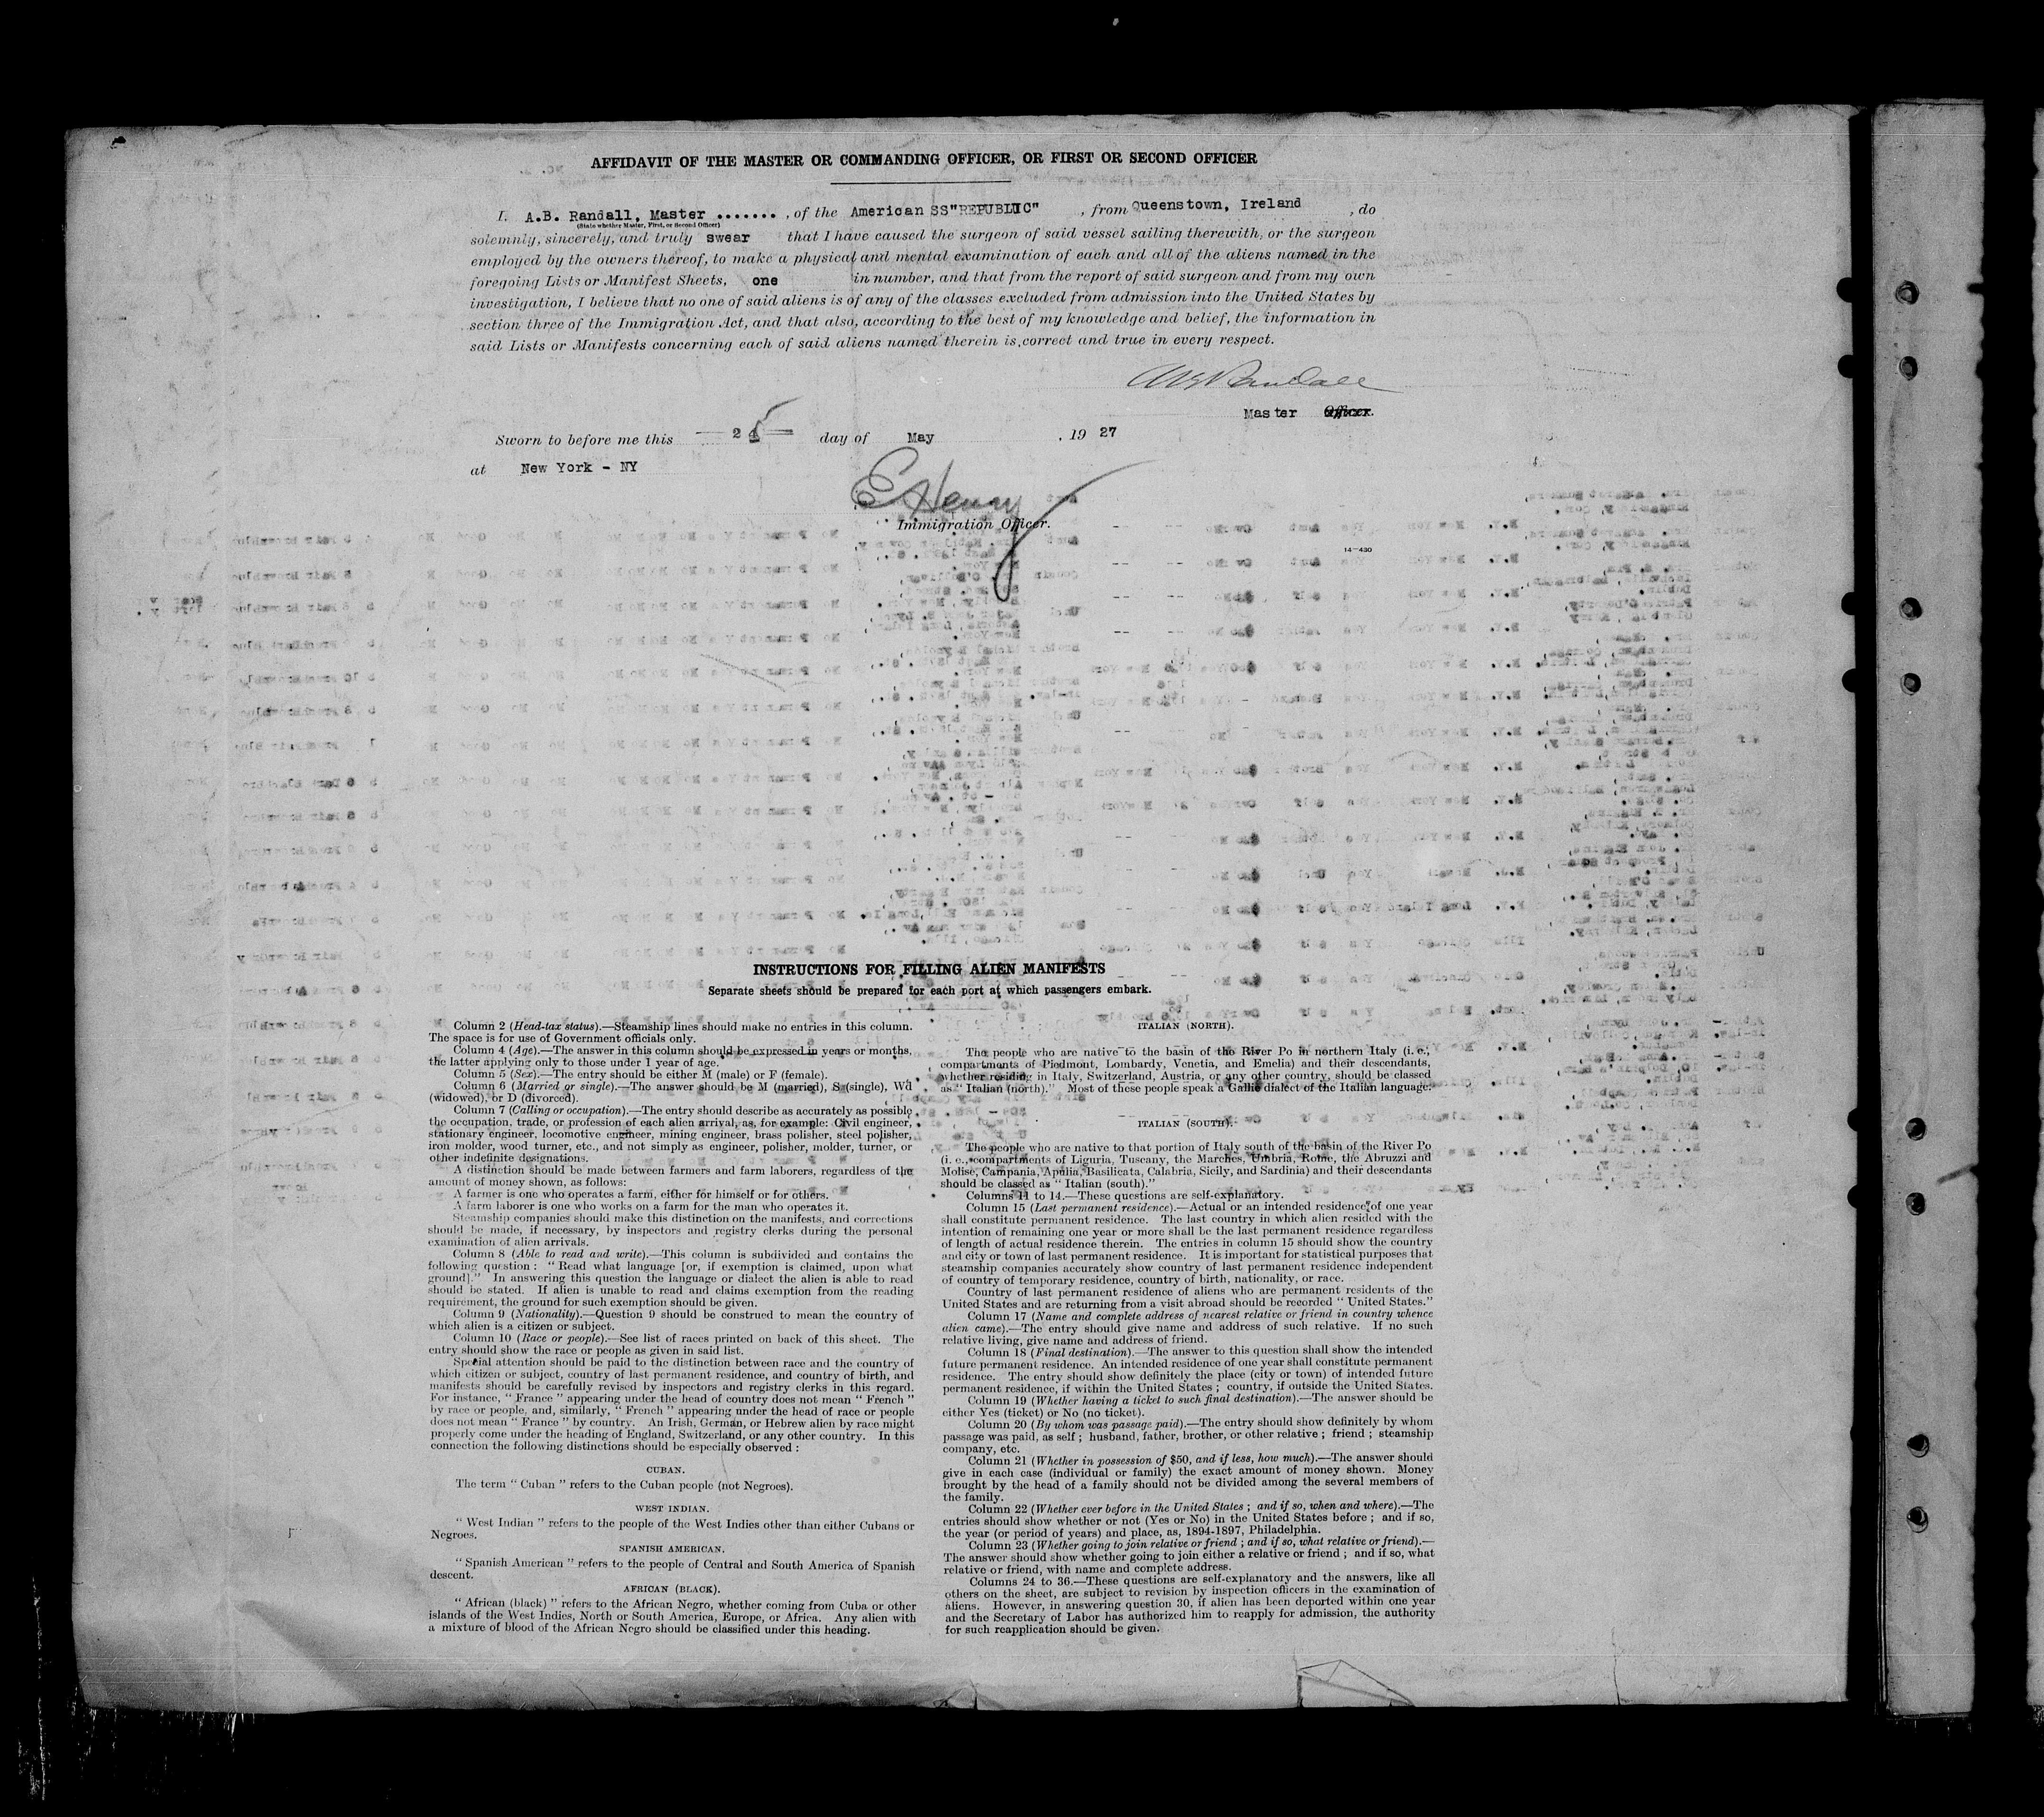 AFFIDAVIT OF THE MASTER OR COMMANDING OFFICER, OR FIRST OR SECOND OFFICER
I, A.B. Randall, Master ......., of the American SS"REPUBLIC", from Queenstown, Ireland, do
(State whether Master, First, or Second Officer)
solemnly, sincerely, and truly swear that I have caused the surgeon of said vessel sailing therewith, or the surgeon
employed by the owners thereof, to make a physical and mental examination of each and all of the aliens named in the
foregoing Lists or Manifest Sheets, one in number, and that from the report of said surgeon and from my own
investigation, I believe that no one of said aliens is of any of the classes excluded from admission into the United States by
section three of the Immigration Act, and that also, according to the best of my knowledge and belief, the information in
said Lists or Manifests concerning each of said aliens named therein is correct and true in every respect.
AB Randall
Master Officer.
Sworn to before me this 25 day of May, 1927
at New York - NY
E Henry
Immigration Officer.
14—430
INSTRUCTIONS FOR FILLING ALIEN MANIFESTS
Separate sheets should be prepared for each port at which passengers embark.
Column 2 (Head-tax status).—Steamship lines should make no entries in this column.
The space is for use of Government officials only.
Column 4 (Age).—The answer in this column should be expressed in years or months,
the latter applying only to those under 1 year of age.
Column 5 (Sex).—The entry should be either M (male) or F (female).
Column 6 (Married or single).—The answer should be M (married), S (single), Wd
(widowed), or D (divorced).
Column 7 (Calling or occupation).—The entry should describe as accurately as possible
the occupation, trade, or profession of each alien arrival, as, for example: Civil engineer,
stationary engineer, locomotive engineer, mining engineer, brass polisher, steel polisher,
iron molder, wood turner, etc., and not simply as engineer, polisher, molder, turner, or
other indefinite designations.
A distinction should be made between farmers and farm laborers, regardless of the
amount of money shown, as follows:
A farmer is one who operates a farm, either for himself or for others.
A farm laborer is one who works on a farm for the man who operates it.
Steamship companies should make this distinction on the manifests, and corrections
should be made, if necessary, by inspectors and registry clerks during the personal
examination of alien arrivals.
Column 8 (Able to read and write).—This column is subdivided and contains the
following question: "Read what language [or, if exemption is claimed, upon what
ground]." In answering this question the language or dialect the alien is able to read
should be stated. If alien is unable to read and claims exemption from the reading
requirement, the ground for such exemption should be given.
Column 9 (Nationality).—Question 9 should be construed to mean the country of
which alien is a citizen or subject.
Column 10 (Race or people).—See list of races printed on back of this sheet. The
entry should show the race or people as given in said list.
Special attention should be paid to the distinction between race and the country of
which citizen or subject, country of last permanent residence, and country of birth, and
manifests should be carefully revised by inspectors and registry clerks in this regard.
For instance, "France" appearing under the head of country does not mean "French"
by race or people, and, similarly, "French" appearing under the head of race or people
does not mean "France" by country. An Irish, German, or Hebrew alien by race might
properly come under the heading of England, Switzerland, or any other country. In this
connection the following distinctions should be especially observed:
CUBAN.
The term "Cuban" refers to the Cuban people (not Negroes).
WEST INDIAN.
"West Indian" refers to the people of the West Indies other than either Cubans or
Negroes.
SPANISH AMERICAN.
"Spanish American" refers to the people of Central and South America of Spanish
descent.
AFRICAN (BLACK).
"African (black)" refers to the African Negro, whether coming from Cuba or other
islands of the West Indies, North or South America, Europe, or Africa. Any alien with
a mixture of blood of the African Negro should be classified under this heading.
ITALIAN (NORTH).
The people who are native to the basin of the River Po in northern Italy (i. e.,
compartments of Piedmont, Lombardy, Venetia, and Emelia) and their descendants,
whether residing in Italy, Switzerland, Austria, or any other country, should be classed
as "Italian (north)." Most of these people speak a Gallic dialect of the Italian language.
ITALIAN (SOUTH).
The people who are native to that portion of Italy south of the basin of the River Po
(i. e., compartments of Liguria, Tuscany, the Marches, Umbria, Rome, the Abruzzi and
Molise, Campania, Apulia, Basilicata, Calabria, Sicily, and Sardinia) and their descendants
should be classed as "Italian (south)."
Columns 11 to 14.—These questions are self-explanatory.
Column 15 (Last permanent residence).—Actual or an intended residence of one year
shall constitute permanent residence. The last country in which alien resided with the
intention of remaining one year or more shall be the last permanent residence regardless
of length of actual residence therein. The entries in column 15 should show the country
and city or town of last permanent residence. It is important for statistical purposes that
steamship companies accurately show country of last permanent residence independent
of country of temporary residence, country of birth, nationality, or race.
Country of last permanent residence of aliens who are permanent residents of the
United States and are returning from a visit abroad should be recorded "United States."
Column 17 (Name and complete address of nearest relative or friend in country whence
alien came).—The entry should give name and address of such relative. If no such
relative living, give name and address of friend.
Column 18 (Final destination).—The answer to this question shall show the intended
future permanent residence. An intended residence of one year shall constitute permanent
residence. The entry should show definitely the place (city or town) of intended future
permanent residence, if within the United States; country, if outside the United States.
Column 19 (Whether having a ticket to such final destination).—The answer should be
either Yes (ticket) or No (no ticket).
Column 20 (By whom was passage paid).—The entry should show definitely by whom
passage was paid, as self; husband, father, brother, or other relative; friend; steamship
company, etc.
Column 21 (Whether in possession of $50, and if less, how much).—The answer should
give in each case (individual or family) the exact amount of money shown. Money
brought by the head of a family should not be divided among the several members of
the family.
Column 22 (Whether ever before in the United States; and if so, when and where).—The
entries should show whether or not (Yes or No) in the United States before; and if so,
the year (or period of years) and place, as, 1894-1897, Philadelphia.
Column 23 (Whether going to join relative or friend; and if so, what relative or friend).—
The answer should show whether going to join either a relative or friend; and if so, what
relative or friend, with name and complete address.
Columns 24 to 36.—These questions are self-explanatory and the answers, like all
others on the sheet, are subject to revision by inspection officers in the examination of
aliens. However, in answering question 30, if alien has been deported within one year
and the Secretary of Labor has authorized him to reapply for admission, the authority
for such reapplication should be given.